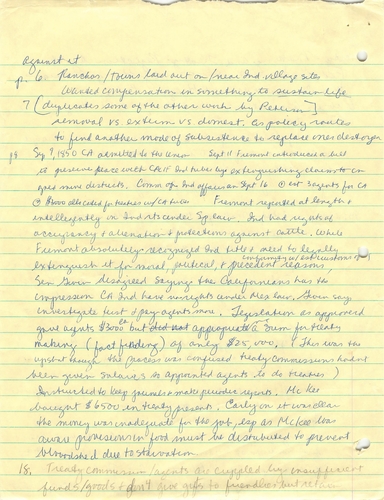 against it
p. 6. Ranchos/Towns laid out on/near Ind. village sites
wanted compensation in something to sustain life
7 [duplicates some of the other work by Peterson]
removal vs. exterm vs. domest. as policy routes
to find another mode of subsistence to replace ones destroyed
p8 Sep 9, 1850 CA admitted to the Union Sept 11 Fremont introduced a bill
to preserve peace with CA Ind tribes by extinguishing claims to
gold mine districts. Comm on Ind affairs on Sept 16 est 3 agents for CA
allocated for treaties w/CA tribes Fremont reported at length &
intelligently on Ind rts under Sp law. Ind had rights of
occupancy & alienation & protections against cattle. While
Fremont absolutely recognized Ind title & need to legally
extinguish it for moral, political, & precedent reasons,
Sen disagreed saying the Californians has the
impression CA Ind have no rights under Mex law. say
investigate first & pay agents more. Legislation as approved
gave agents $3000 but did not appropriate a sum for treaty
making (fact finding) of only $25,000. (This was the
upshot though the process was confused treaty commissions hadn't
been given salaries so appointed agents to do treaties)
Instructed to keep journals & make periodic reports. McKee
bought $6500 in treaty presents. Early on it was clear
the money was inadequate for the job, esp as McKee was
aware provisions in food must be distributed to prevent
bloodshed due to starvation.
18. Treaty commission/agents as crippled by insufficient
funds/goods & don't give gifts to friendlies but